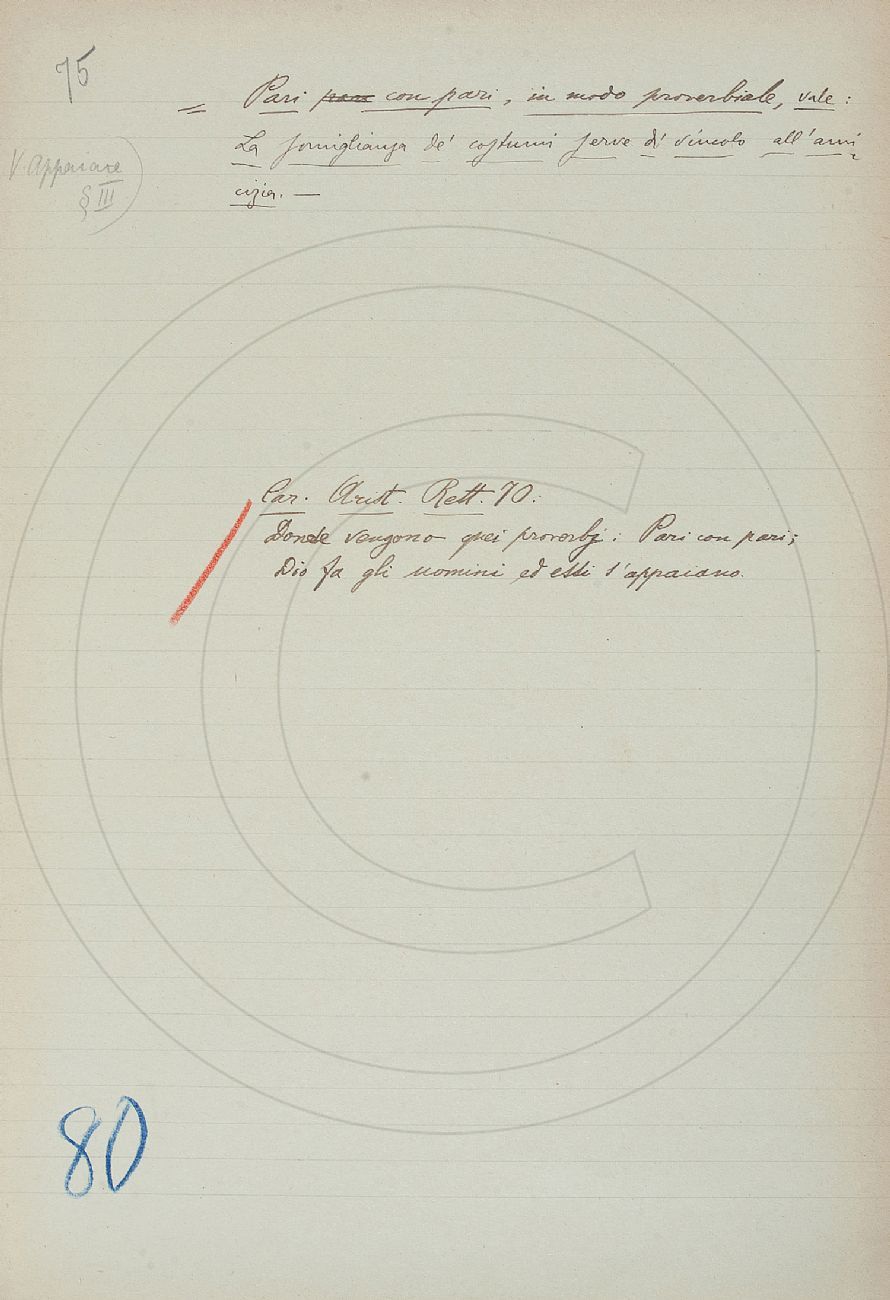 75
= Pari con pari, in modo proverbiale, vale:
La somiglianza de' costumi serve di vincolo all'ami-
cizia. —
V. Appaiare
§ III
Car. Arist. Rett. 70:
Donde vengono quei proverbj: Pari con pari;
Dio fa gli uomini ed essi s'appaiano.
80